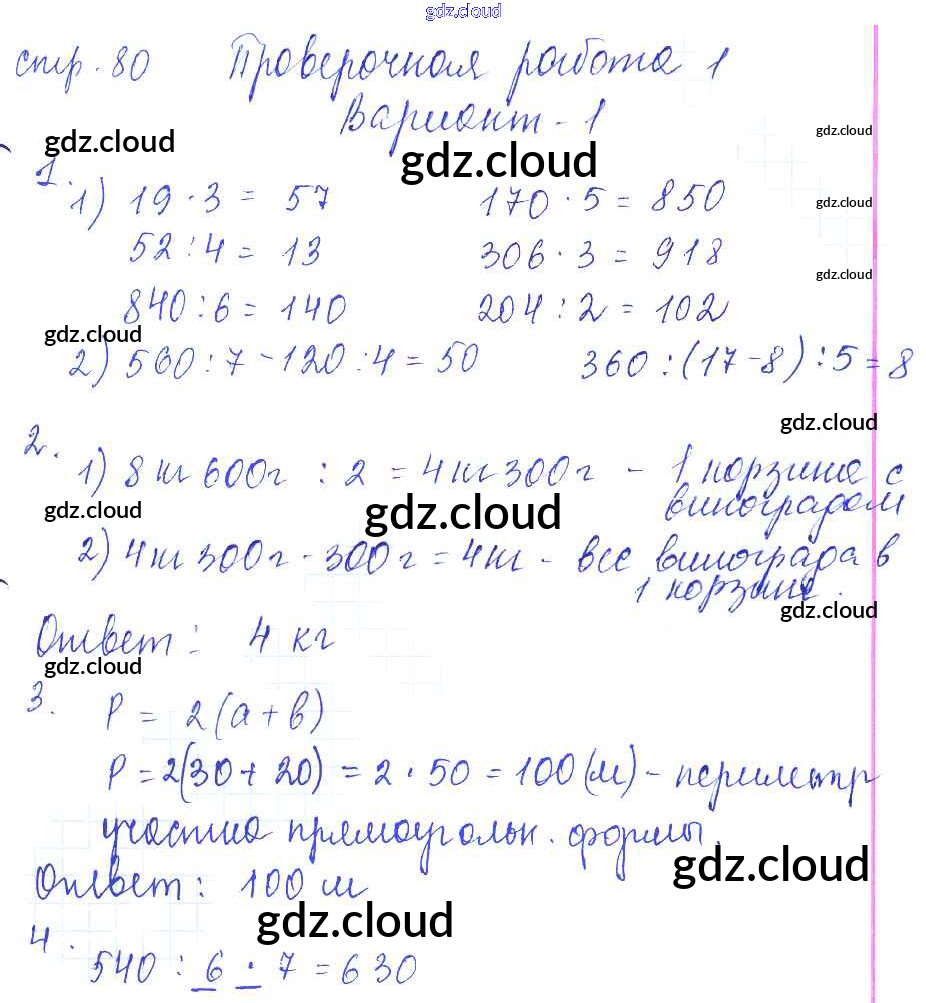 gdz.cloud
стр. 80 Проверочная работа 1
Вариант - 1
gdz.cloud
gdz.cloud
gdz.cloud
1.
1) 19 · 3 = 57 170 · 5 = 850
gdz.cloud
52 : 4 = 13 306 · 3 = 918
gdz.cloud
840 : 6 = 140 204 : 2 = 102
gdz.cloud
2) 560 : 7 - 120 : 4 = 50 360 : (17 - 8) : 5 = 8
gdz.cloud
2.
1) 8 кг 600 г : 2 = 4 кг 300 г - 1 корзина с
виноградом
gdz.cloud
gdz.cloud
2) 4 кг 300 г - 300 г = 4 кг - вес винограда в
1 корзине.
gdz.cloud
Ответ: 4 кг
gdz.cloud
3. P = 2(a + b)
P = 2(30 + 20) = 2 · 50 = 100 (м) - периметр
участка прямоугольн. формы.
gdz.cloud
Ответ: 100 м
gdz.cloud
4. 540 : 6 · 7 = 630